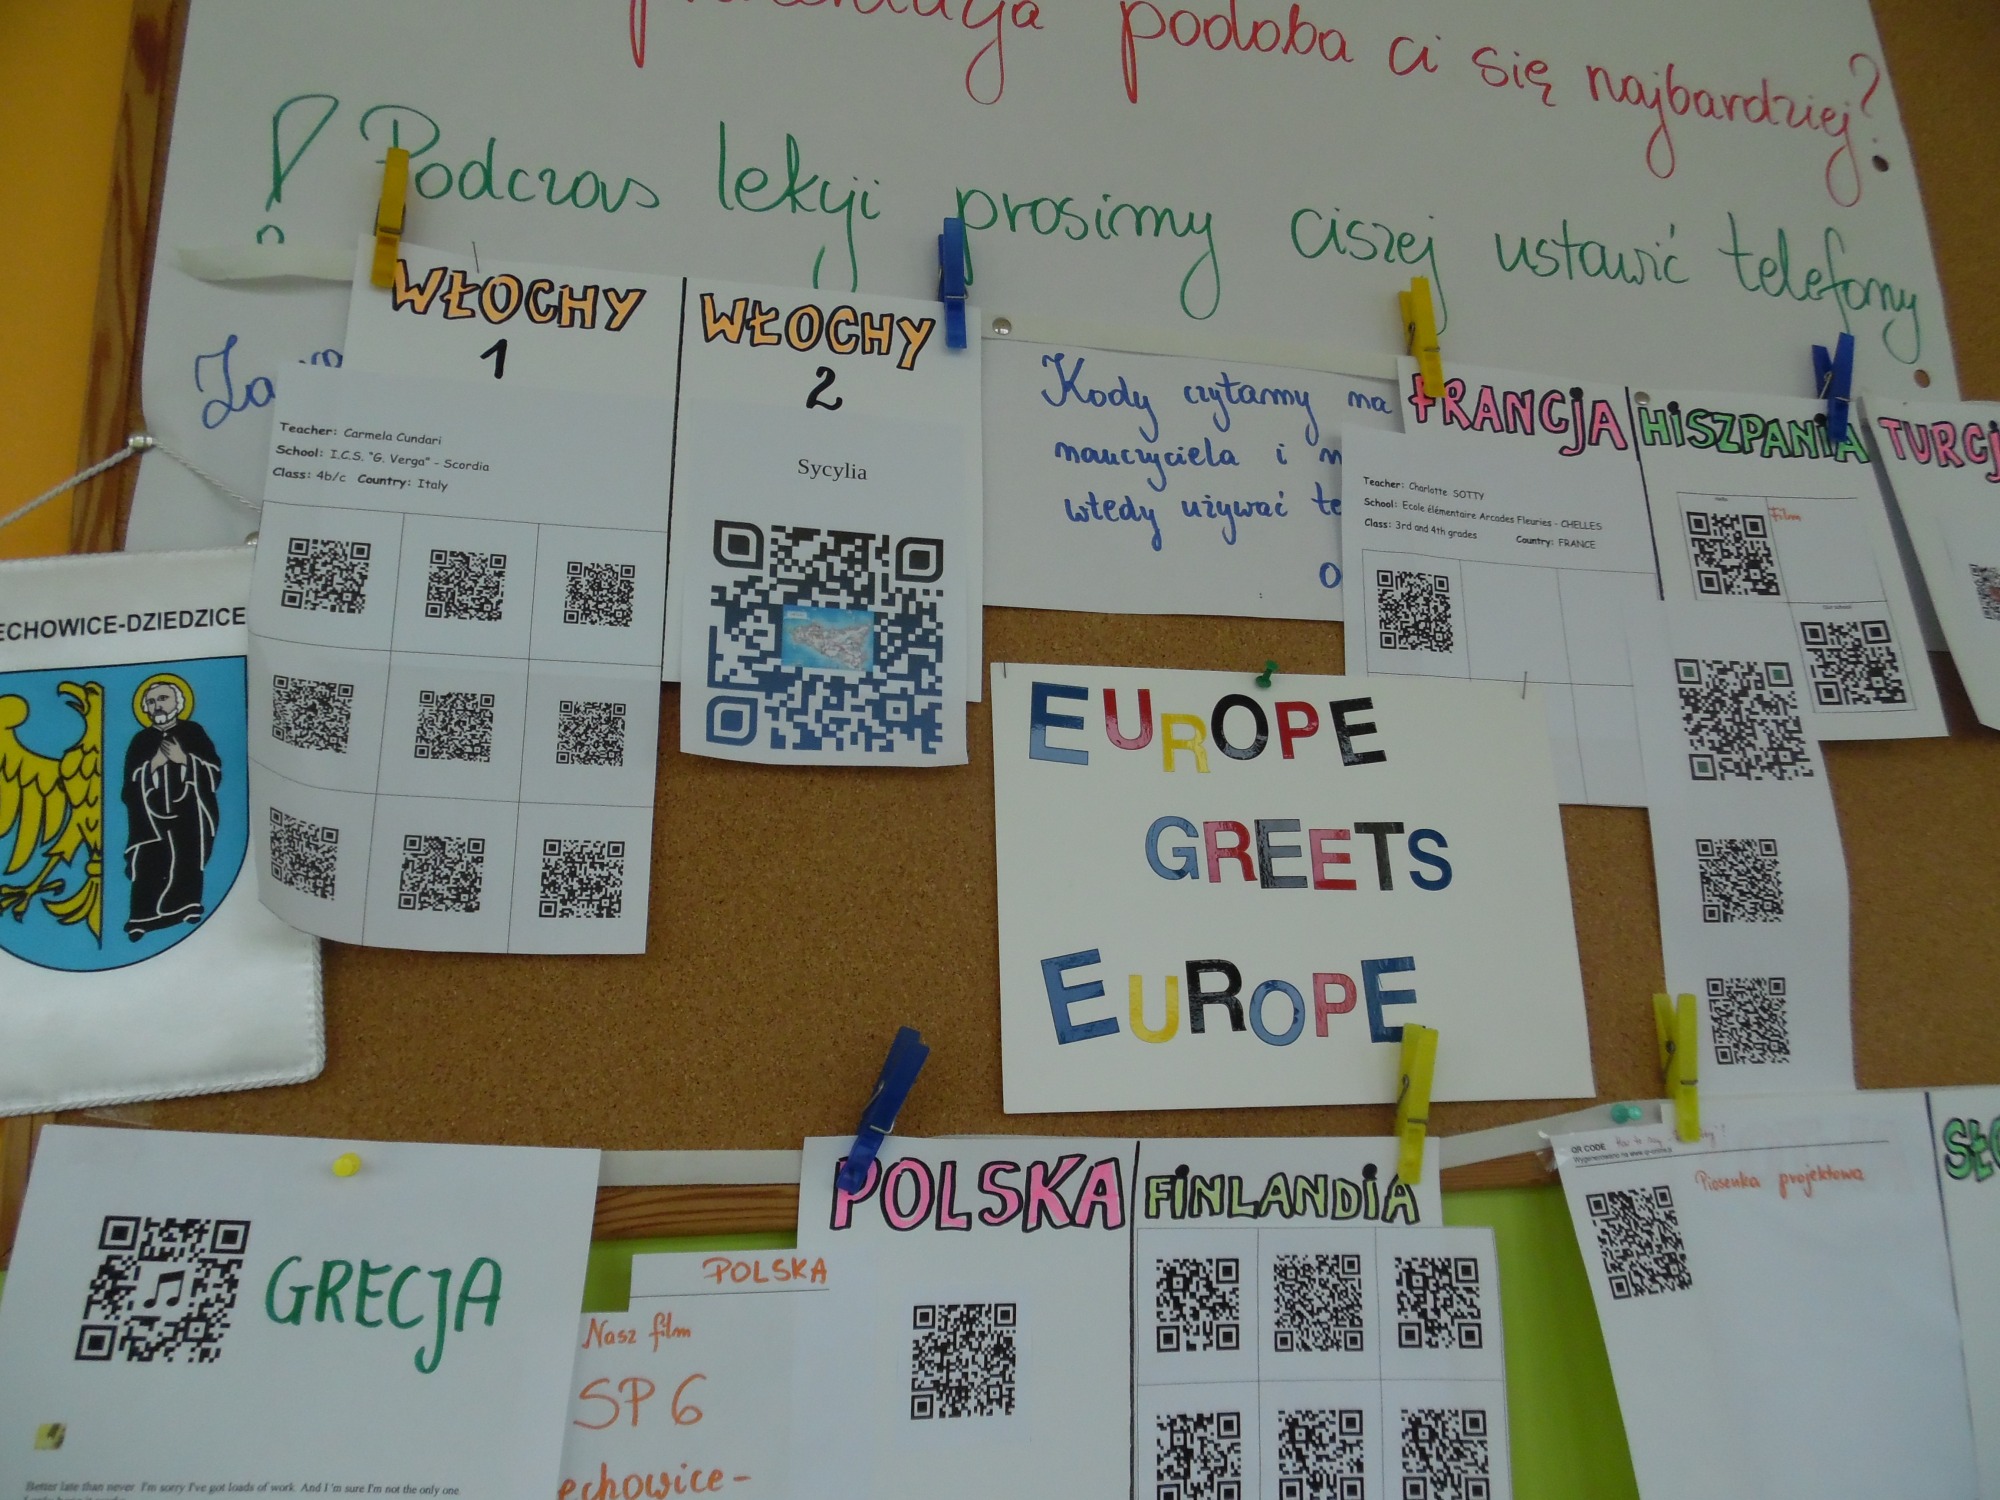 podoba ci się najbardziej?
! Podczas lekcji prosimy ciszej ustawić telefony
WŁOCHY
1
WŁOCHY
2
Teacher: Carmela Cundari
School: I.C.S. "G. Verga" - Scordia
Class: 4b/c Country: Italy
Sycylia
Kody czytamy na
nauczyciela i
wtedy używać te
FRANCJA
HISZPANIA
TURCJ
Teacher: Charlotte SOTTY
School: Ecole élémentaire Arcades Fleuries - CHELLES
Class: 3rd and 4th grades Country: FRANCE
film
Our school
ECHOWICE-DZIEDZICE
EUROPE
GREETS
EUROPE
GRECJA
Better late than never. I'm sorry I've got loads of work. And I'm sure I'm not the only one.
POLSKA
FINLANDIA
POLSKA
Nasz film
SP 6
echowice-
QR CODE
Piosenka projektowa
SŁO